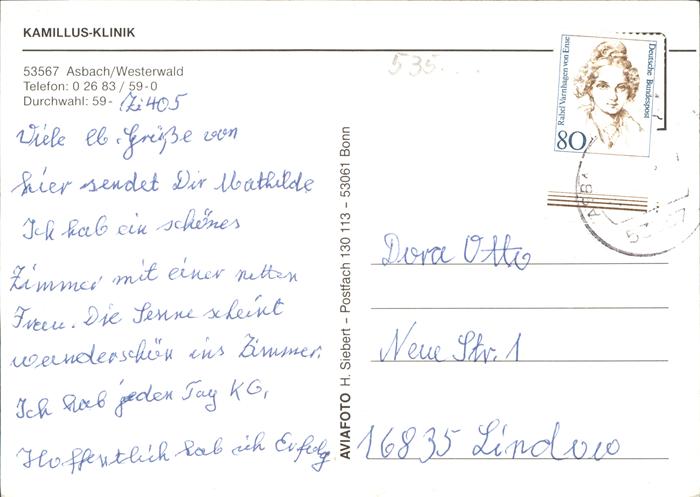 KAMILLUS-KLINIK
53567 Asbach/Westerwald
Telefon: 0 26 83 / 59-0
Durchwahl: 59- Zi 405
Viele lb. Grüße von
hier sendet Dir Mathilde
Ich hab ein schönes
Zimmer mit einer netten
Frau. Die Senne scheint
wunderschön ins Zimmer.
Ich hab jeden Tag KG,
Hoffentlich hab ich Erfolg
AVIAFOTO H. Siebert – Postfach 130 113 – 53061 Bonn
535...
Rahel Varnhagen von Ense
Deutsche Bundespost
80
Dora Otto
Neue Str. 1
16835 Lindow